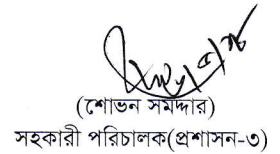 (শোভন সমদ্দার)
সহকারী পরিচালক(প্রশাসন-৩)